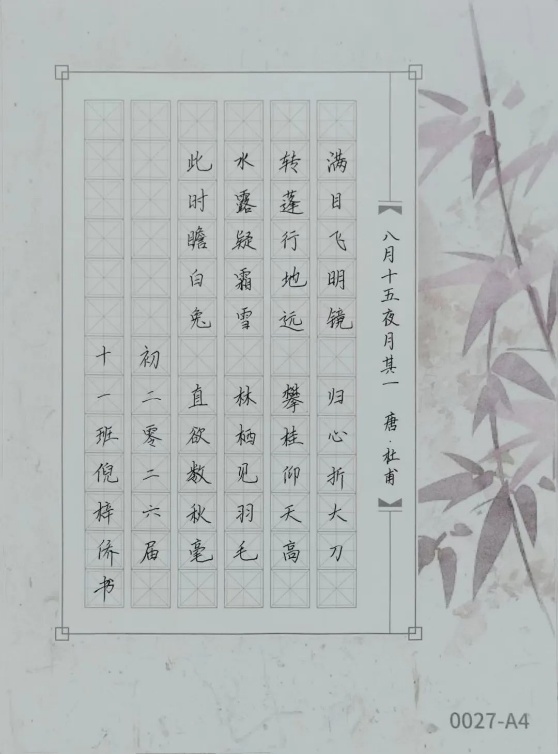 八月十五夜月其一 唐·杜甫
满目飞明镜 归心折大刀
转蓬行地远 攀桂仰天高
水露疑霜雪 林栖见羽毛
此时瞻白兔 直欲数秋毫
初二零二六届
十一班倪梓侨书
0027-A4